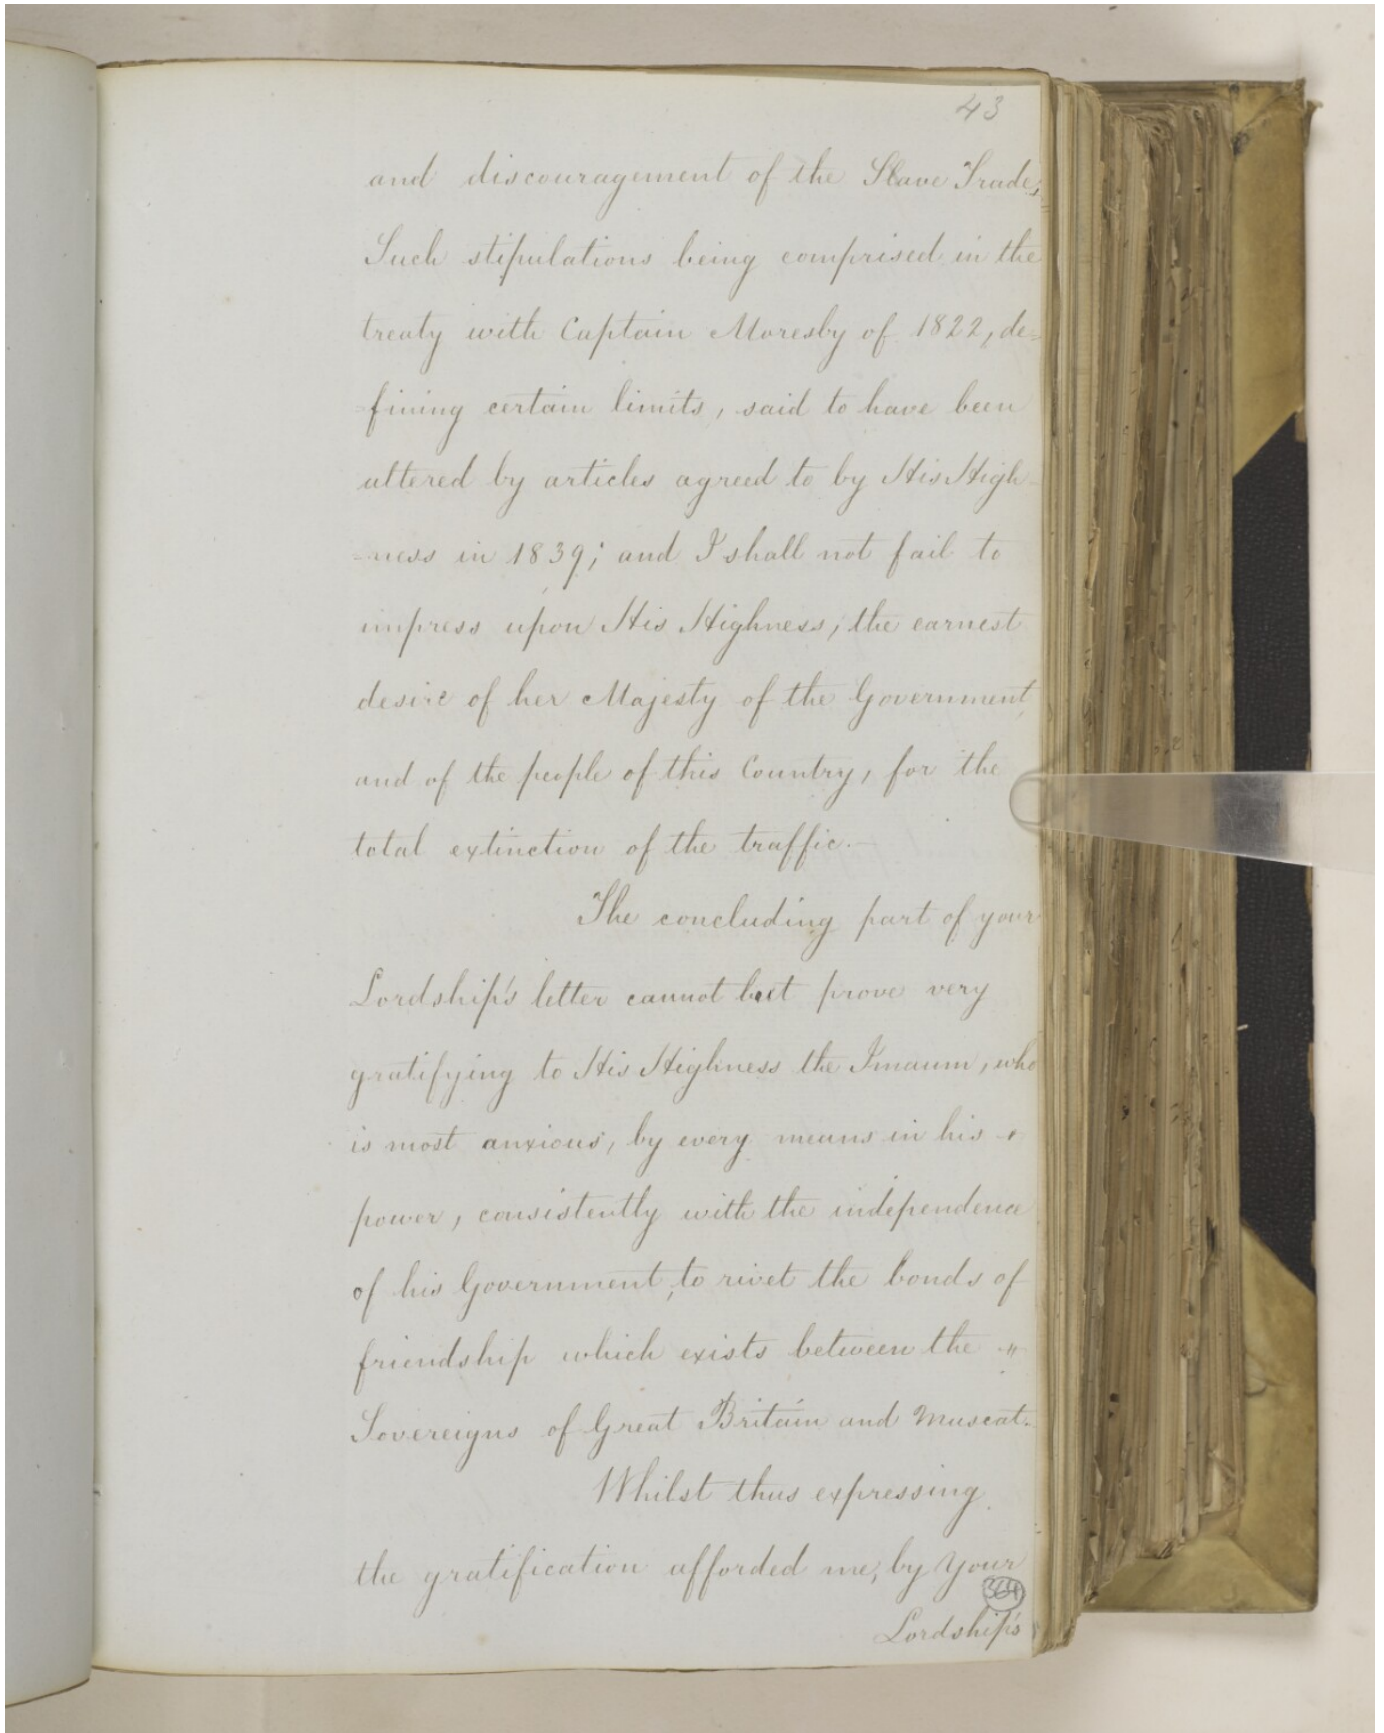 43
and discouragement of the Slave Trade,
Such stipulations being comprised in the
treaty with Captain Moresby of 1822, de=
=fining certain limits, said to have been
altered by articles agreed to by His High-
=ness in 1839; and I shall not fail to
impress upon His Highness, the earnest
desire of her Majesty of the Government,
and of the people of this Country, for the
total extinction of the traffic.—
The concluding part of your
Lordship's letter cannot but prove very
gratifying to His Highness the Imaum, who
is most anxious, by every means in his
power, consistently with the independence
of his Government, to rivet the bonds of
friendship which exists between the "
Sovereigns of Great Britain and Muscat.
Whilst thus expressing
the gratification afforded me, by Your
Lordship's